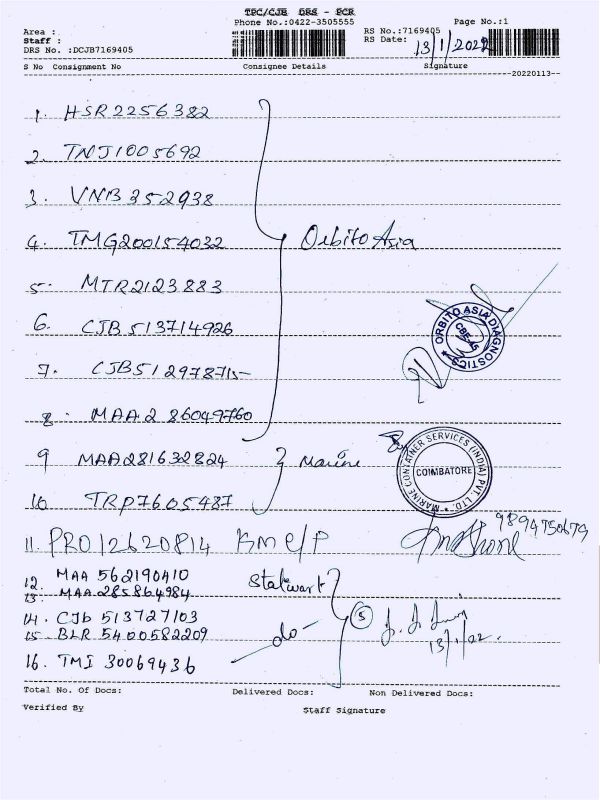 TPC/CJB DRS - PCR
Phone No.:0422-3505555
Page No.:1
Area :
Staff :
DRS No. :DCJB7169405
RS No.:7169405
RS Date: 13/1/2022
S No Consignment No Consignee Details Signature
20220113
1. HSR2256382
2. TNJ1005692
3. VNB352938
4. TMG200154032 Orbito Asia
5. MTR2123883
6. CJB 513714926
ORBITO ASIA DIAGNOSTICS
CBE-45
7. CJB512978715
8. MAA286049760
9 MAA281632824 Marine
MARINE CONTAINER SERVICES (INDIA) PVT. LTD.
COIMBATORE
10. TRP7605487
11. PRO12620814 KMC/P
9894750679
12. MAA 562190410 Stalwart
13. MAA 285864984
14. CJb 513727103
15. BLR 5400582209 do
5
13/1/22
16. TMI 30069436
Total No. Of Docs: Delivered Docs: Non Delivered Docs:
Verified By Staff Signature